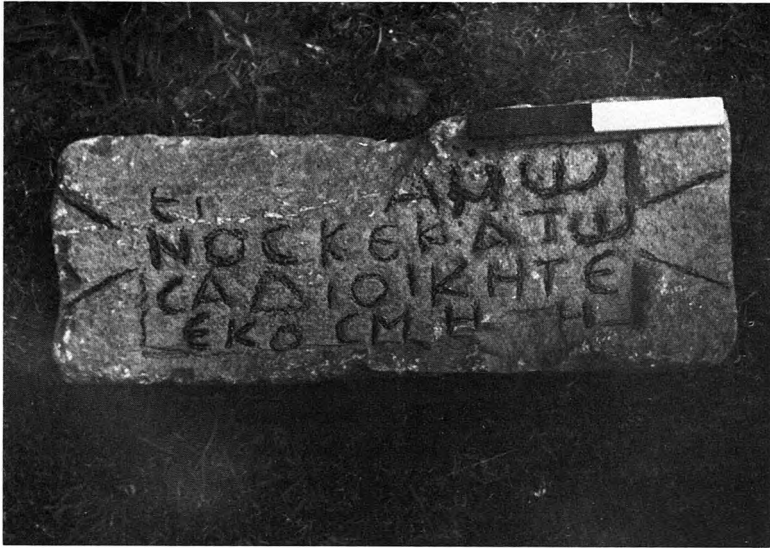 ΕΙ ΑΜΩ
ΝΟΣΚΕΚΑΤΩ
ΣΑΔΙΟΙΚΗΤΕ
ΕΚΟΣΜΗ Η